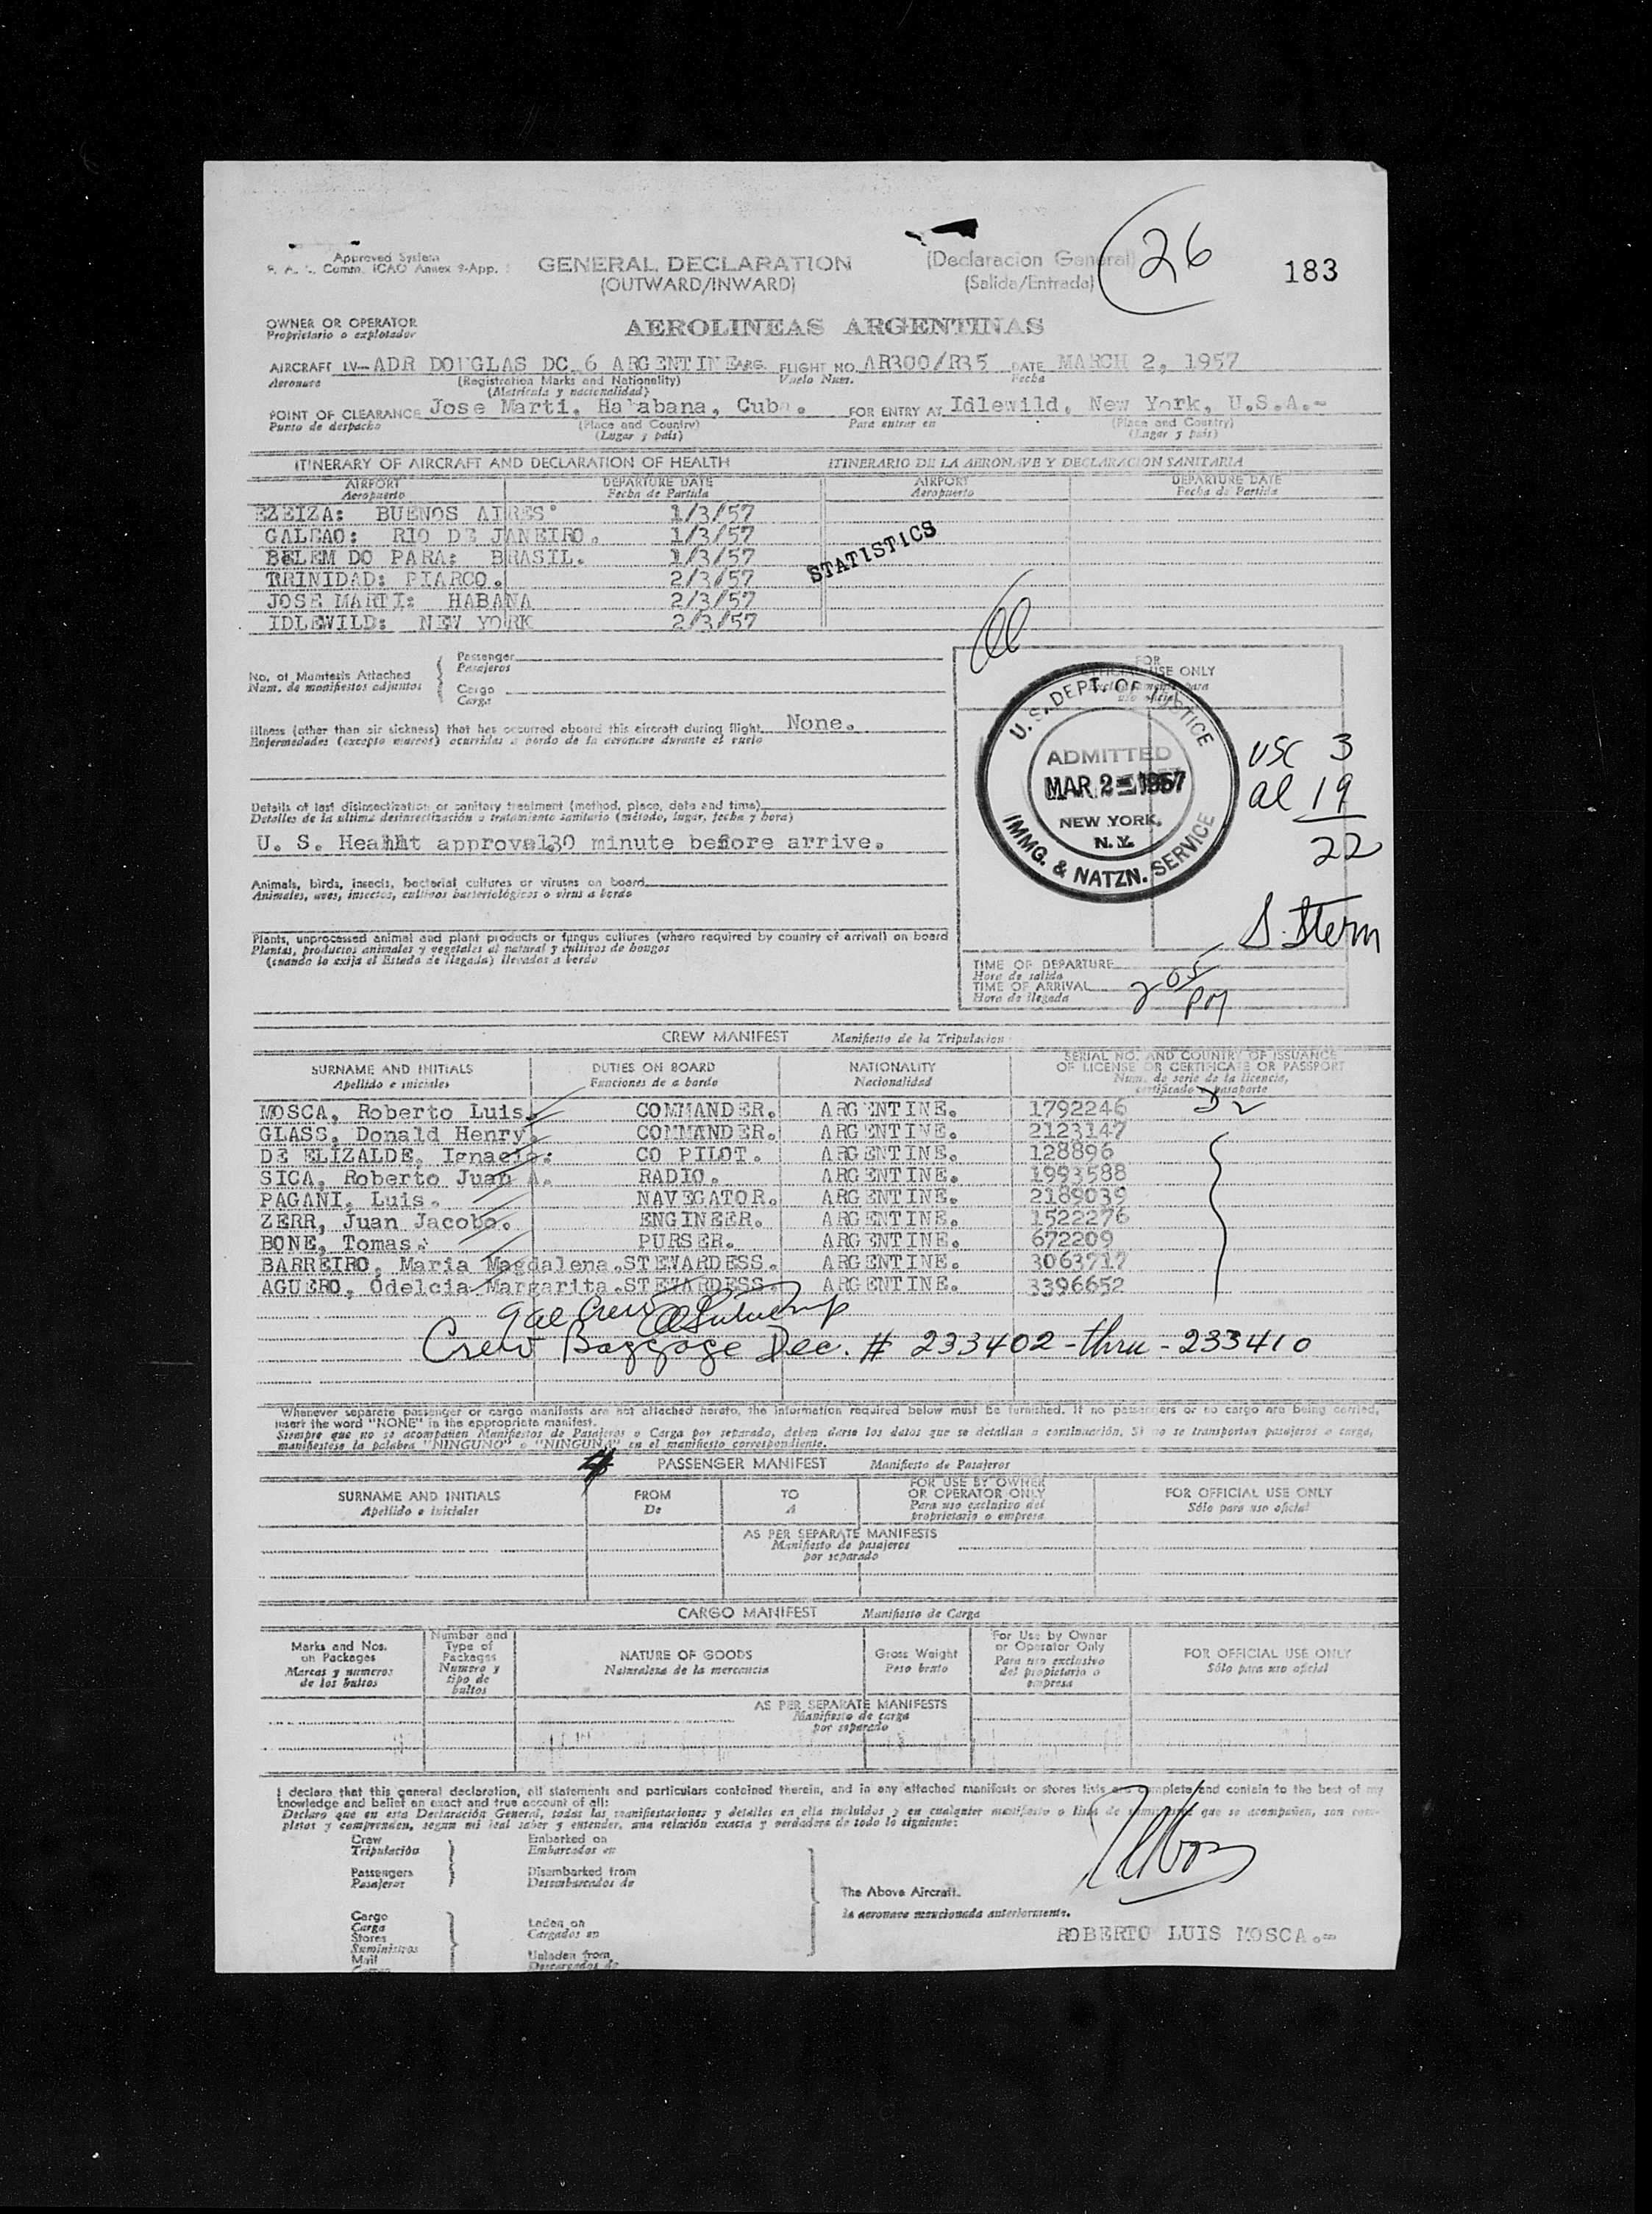 Approved System
Comm. ICAO Annex 9-App.
GENERAL DECLARATION
(OUTWARD/INWARD)
(Declaracion General)
(Salida/Entrada)
26
183
OWNER OR OPERATOR
Proprietario o explotador
AEROLINEAS ARGENTINAS
AIRCRAFT LV-ADR DOUGLAS DC 6 ARGENTINE ARG. FLIGHT NO. AR300/R35 DATE MARCH 2, 1957
Aeronave (Registration Marks and Nationality) Vuelo Num. Fecha
(Matricula y nacionalidad)
POINT OF CLEARANCE Jose Marti, Habana, Cuba. FOR ENTRY AT Idlewild, New York, U.S.A.-
Punto de despacho (Place and Country) Para entrar en (Place and Country)
(Lugar y país) (Lugar y país)
ITINERARY OF AIRCRAFT AND DECLARATION OF HEALTH ITINERARIO DE LA AERONAVE Y DECLARACION SANITARIA
AIRPORT DEPARTURE DATE AIRPORT DEPARTURE DATE
Aeropuerto Fecha de Partida Aeropuerto Fecha de Partida
EZEIZA: BUENOS AIRES 1/3/57
GALEAO: RIO DE JANEIRO. 1/3/57
BELEM DO PARA: BRASIL. 1/3/57
TRINIDAD: PIARCO. 2/3/57
JOSE MARTI: HABANA 2/3/57
IDLEWILD: NEW YORK 2/3/57
STATISTICS
No. of Manifests Attached
Num. de manifiestos adjuntos
Passenger
Pasajeros
Cargo
Carga
FOR
OFFICIAL USE ONLY
Exclusivamente para
uso oficial
Illness (other than air sickness) that has occurred aboard this aircraft during flight None.
Enfermedades (excepto mareos) ocurridas a bordo de la aeronave durante el vuelo
U. S. DEPT. OF JUSTICE
ADMITTED
MAR 2 - 1957
NEW YORK,
N.Y.
IMMG. & NATZN. SERVICE
USC 3
al 19
22
S. Stern
Details of last disinsectization or sanitary treatment (method, place, date and time)
Detalles de la ultima desinsectización o tratamiento sanitario (método, lugar, fecha y hora)
U. S. Heahht approval30 minute before arrive.
Animals, birds, insects, bacterial cultures or viruses on board
Animales, aves, insectos, cultivos bacteriológicos o virus a bordo
Plants, unprocessed animal and plant products or fungus cultures (where required by country of arrival) on board
Plantas, productos animales y vegetales al natural y cultivos de hongos
(cuando lo exija el Estado de llegada) llevados a bordo
TIME OF DEPARTURE
Hora de salida
TIME OF ARRIVAL 2 05 PM
Hora de llegada
CREW MANIFEST Manifiesto de la Tripulacion
SURNAME AND INITIALS DUTIES ON BOARD NATIONALITY SERIAL NO. AND COUNTRY OF ISSUANCE
OF LICENSE OR CERTIFICATE OR PASSPORT
Apellido e iniciales Funciones de a bordo Nacionalidad Num. de serie de la licencia,
certificado o pasaporte
MOSCA, Roberto Luis. COMMANDER. ARGENTINE. 1792246 D2
GLASS, Donald Henry. COMMANDER. ARGENTINE. 2123147
DE ELIZALDE, Ignacio. CO PILOT. ARGENTINE. 128896
SICA, Roberto Juan A. RADIO. ARGENTINE. 1993588
PAGANI, Luis. NAVEGATOR. ARGENTINE. 2189039
ZERR, Juan Jacobo. ENGINEER. ARGENTINE. 1522276
BONE, Tomas. PURSER. ARGENTINE. 672209
BARREIRO, Maria Magdalena. STEWARDESS. ARGENTINE. 3063717
AGUERO, Odelcia Margarita. STEWARDESS. ARGENTINE. 3396652
9 al Crew
Crew Baggage Dec. # 233402 - thru - 233410
Whenever separate passenger or cargo manifests are not attached hereto, the information required below must be furnished. If no passengers or no cargo are being carried,
insert the word "NONE" in the appropriate manifest.
Siempre que no se acompañen Manifiestos de Pasajeros o Carga por separado, deben darse los datos que se detallan a continuación. Si no se transportan pasajeros o carga,
manifiestese la palabra "NINGUNO" o "NINGUNA" en el manifiesto correspondiente.
PASSENGER MANIFEST Manifiesto de Pasajeros
SURNAME AND INITIALS FROM TO FOR USE BY OWNER
OR OPERATOR ONLY FOR OFFICIAL USE ONLY
Apellido e iniciales De A Para uso exclusivo del
propietario o empresa Sólo para uso oficial
AS PER SEPARATE MANIFESTS
Manifiesto de pasajeros
por separado
CARGO MANIFEST Manifiesto de Carga
Marks and Nos.
on Packages
Marcas y numeros
de los bultos
Number and
Type of
Packages
Numero y
tipo de
bultos
NATURE OF GOODS
Naturaleza de la mercancia
Gross Weight
Peso bruto
For Use by Owner
or Operator Only
Para uso exclusivo
del propietario o
empresa
FOR OFFICIAL USE ONLY
Sólo para uso oficial
AS PER SEPARATE MANIFESTS
Manifiesto de carga
por separado
I declare that this general declaration, all statements and particulars contained therein, and in any attached manifests or stores lists are complete and contain to the best of my
knowledge and belief an exact and true account of all:
Declaro que en esta Declaración General, todas las manifestaciones y detalles en ella incluidos y en cualquier manifiesto o lista de suministros que se acompañen, son com-
pletos y comprenden, segun mi leal saber y entender, una relación exacta y verdadera de todo lo siguiente:
Crew
Tripulación
Passengers
Pasajeros
Embarked on
Embarcados en
Disembarked from
Desembarcados de
Cargo
Carga
Stores
Suministros
Mail
Correo
Laden on
Cargados en
Unladen from
Descargados de
The Above Aircraft.
la aeronave mencionada anteriormente.
ROBERTO LUIS MOSCA.-